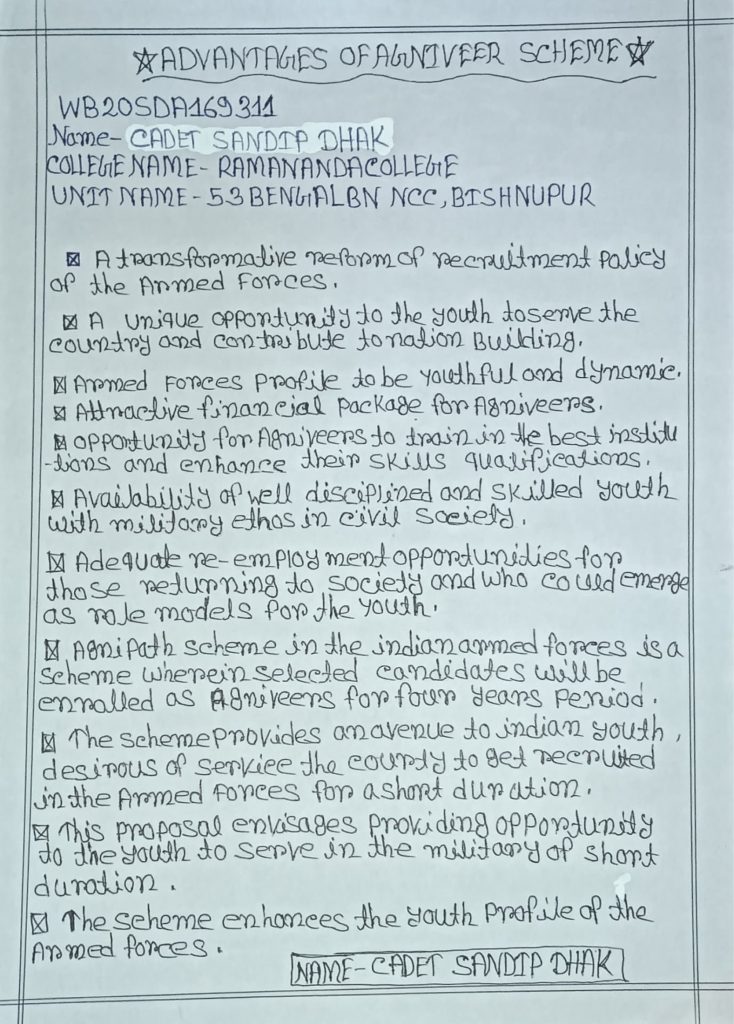 ☆ADVANTAGES OF AGNIVEER SCHEME☆
WB20SDA169311
Name- CADET SANDIP DHAK
COLLEGE NAME- RAMANANDA COLLEGE
UNIT NAME- 53 BENGAL BN NCC, BISHNUPUR
☒ A transformative reform of recruitment policy
of the Armed Forces.
☒ A unique opportunity to the youth to serve the
country and contribute to nation Building.
☒ Armed Forces Profile to be youthful and dynamic.
☒ Attractive financial package for Agniveers.
☒ Opportunity for Agniveers to train in the best institu
-tions and enhance their skills qualifications.
☒ Availability of well disciplined and skilled youth
with military ethos in civil society.
☒ Adequate re-employment opportunities for
those returning to society and who could emerge
as role models for the youth.
☒ Agnipath scheme in the indian armed forces is a
scheme wherein selected candidates will be
enrolled as Agniveers for four years period.
☒ The scheme provides an avenue to indian youth,
desirous of servicee the county to get recruited
in the Armed Forces for a short duration.
☒ This proposal envisages providing opportunity
to the youth to serve in the military of short
duration.
☒ The scheme enhances the youth profile of the
Armed forces.
NAME- CADET SANDIP DHAK